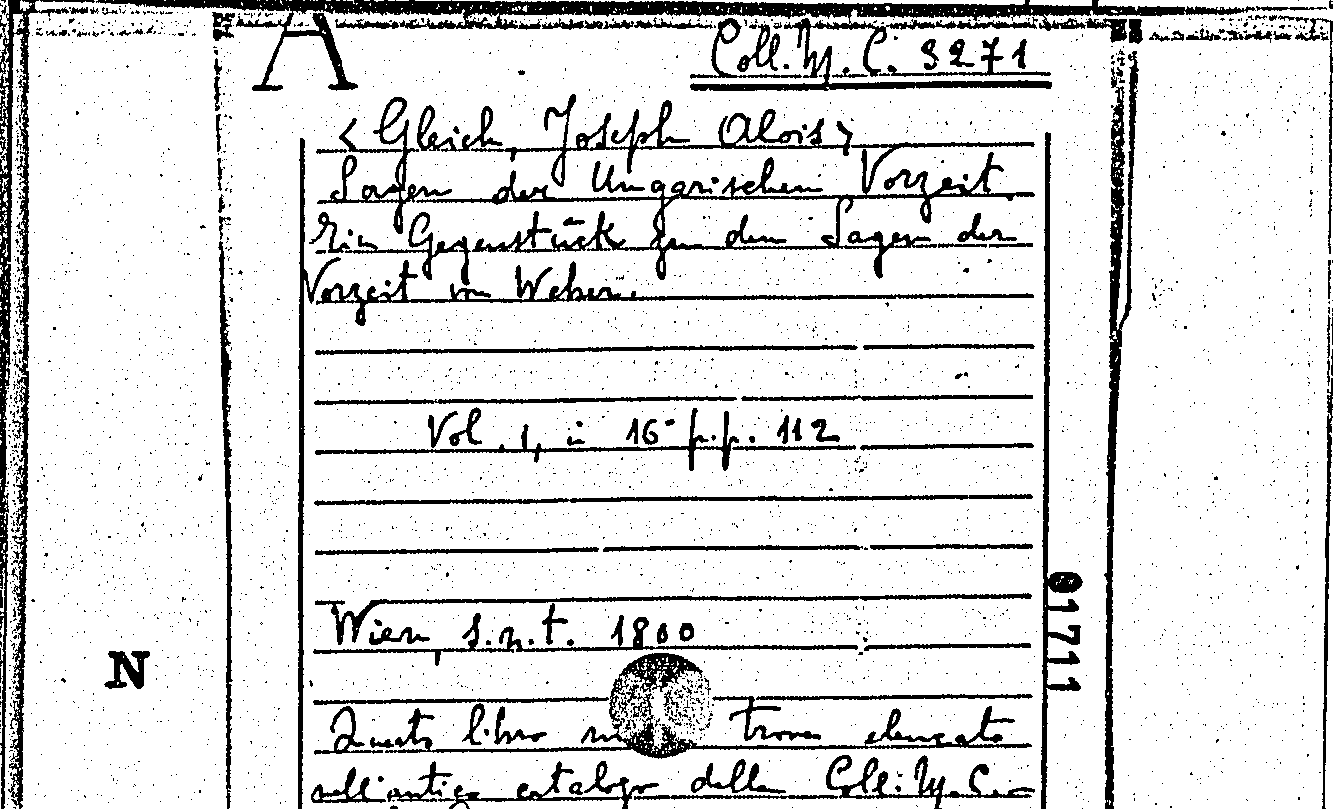 A
Coll. M. C. 3271
<Gleich, Joseph Alois>
Sagen der Ungarischen Vorzeit.
Ein Gegenstück zu den Sagen der
Vorzeit von Weber.
Vol. 1, in 16° p.p. 112
Wien, s.n.t. 1800
01711
N
Questo libro trova elencato
nell'antico catalogo della Coll. M. C.